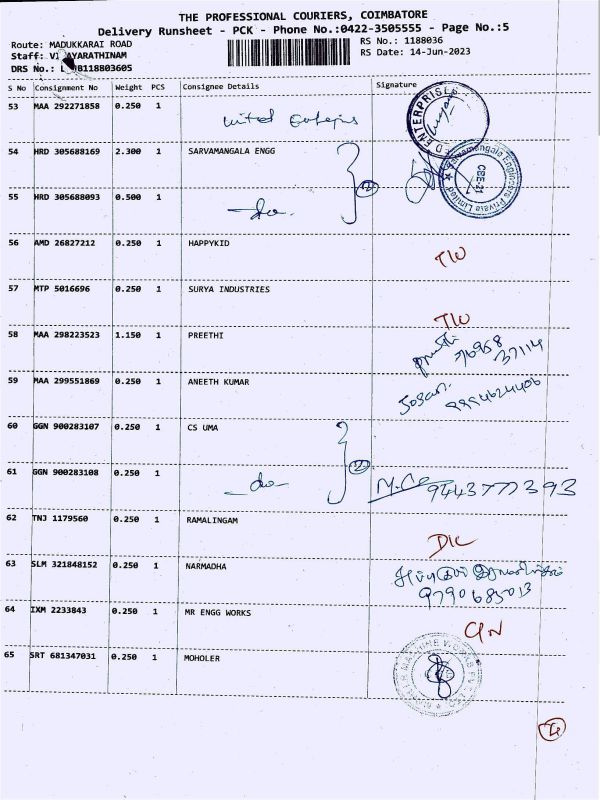 THE PROFESSIONAL COURIERS, COIMBATORE
Delivery Runsheet - PCK - Phone No.:0422-3505555 - Page No.:5
Route: MADUKKARAI ROAD
RS No.: 1188036
Staff: AYARATHINAM
RS Date: 14-Jun-2023
DRS No.: B118803605
S No Consignment No Weight PCS Consignee Details Signature
53 MAA 292271858 0.250 1
ENTERPRISES
54 HRD 305688169 2.300 1 SARVAMANGALA ENGG
Sarvamangala Engineers Private Limited
CBE-21
55 HRD 305688093 0.500 1 -do- 2
56 AMD 26827212 0.250 1 HAPPYKID
57 MTP 5016696 0.250 1 SURYA INDUSTRIES
58 MAA 298223523 1.150 1 PREETHI
76958
37114
59 MAA 299551869 0.250 1 ANEETH KUMAR
9994624406
60 GGN 900283107 0.250 1 CS UMA
61 GGN 900283108 0.250 1 -do- 2 9443777393
62 TNJ 1179560 0.250 1 RAMALINGAM
63 SLM 321848152 0.250 1 NARMADHA
9790685013
64 IXM 2233843 0.250 1 MR ENGG WORKS
65 SRT 681347031 0.250 1 MOHOLER